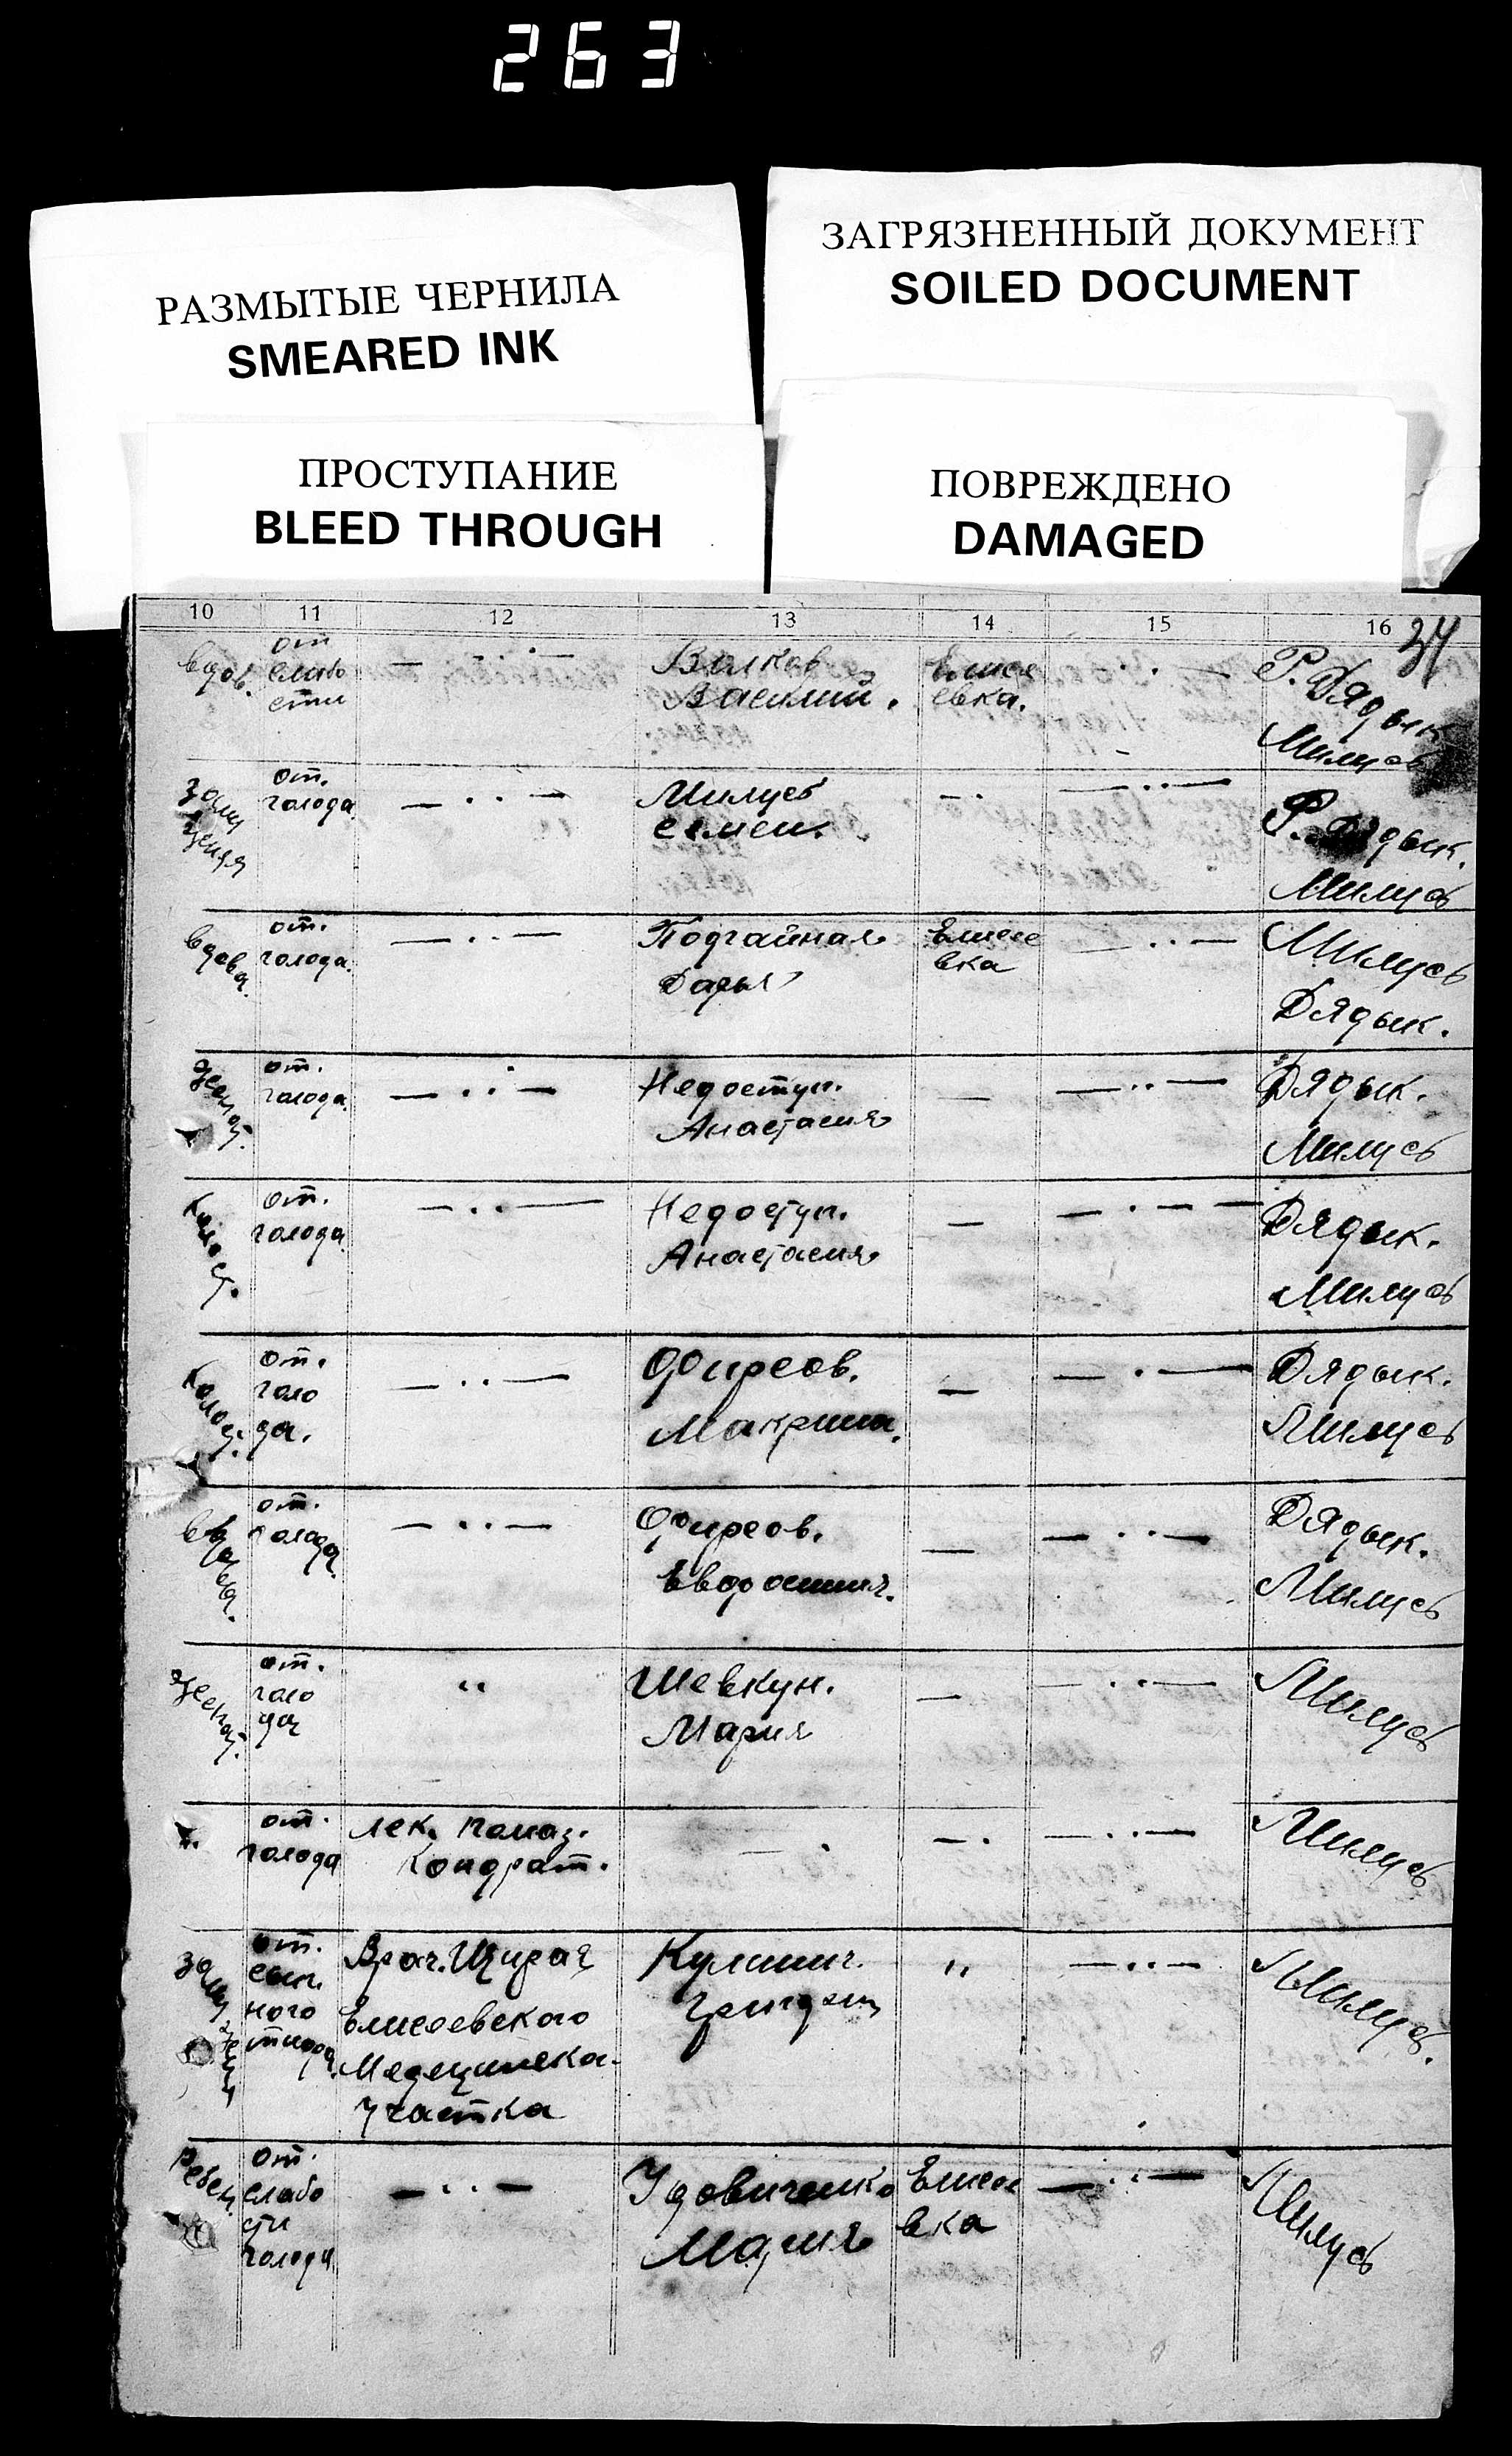 263
РАЗМЫТЫЕ ЧЕРНИЛА
SMEARED INK
ЗАГРЯЗНЕННЫЙ ДОКУМЕНТ
SOILED DOCUMENT
ПРОСТУПАНИЕ
BLEED THROUGH
ПОВРЕЖДЕНО
DAMAGED
10 11 12 13 14 15 16
34
вдов.
от
слабо
сти
— · · —
Волков
Василий.
Елисе
евка.
· · —
Р. Дядык
Милусь
от.
голода.
— · · —
Милусь
семен.
— ·
— · · —
Р. Дядык.
Милусь
вдова.
от.
голода.
— · · —
Подгайная
Дарья
Елисе
вка
— · · —
Милусь
Дядык.
женат.
от.
голода.
— · · —
Недоступ.
Анастасия
—
— · · —
Дядык.
Милусь
холост.
от.
голода.
— · · —
Недоступ.
Анастасия
—
— · — —
Дядык.
Милусь
холост.
от.
голо
да.
— · · —
Фирсов.
Макрина.
—
— · —
Дядык.
Милусь
вдова.
от.
голода.
— · · —
Фирсов.
—
— · · —
Дядык.
Милусь
женат.
от.
голо
да
"
Шевкун.
Мария
—
— · · —
Милусь
от.
голода
Лек. помощ.
Кондрат.
— ·
— ·
— · · —
Милусь
от.
сып.
ного
тифа.
Врач.
Елисеевского
Медецинска.
участка
"
— · · —
Милусь.
ребен.
от.
слабо
сти
голода
— · · —
Удовиченко
Мария
Елисе
вка
— · · —
Милусь